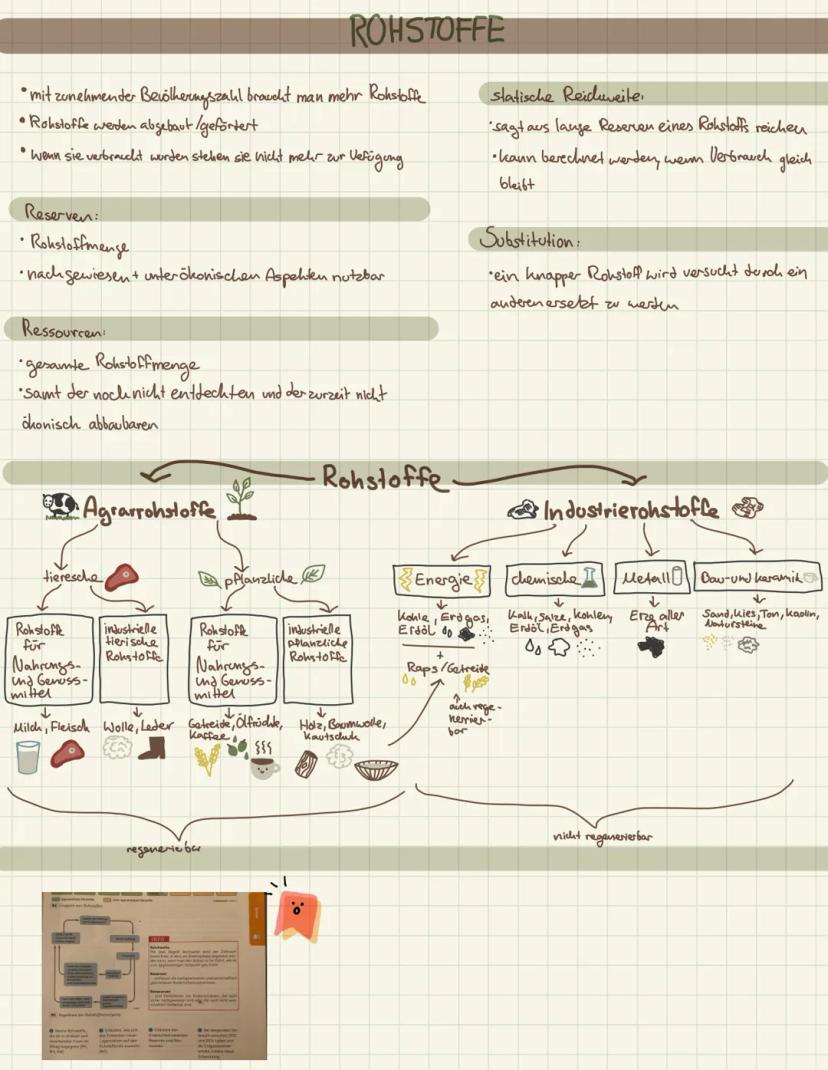 ROHSTOFFE
• mit zunehmender Bevölkerungszahl braucht man mehr Rohstoffe
• Rohstoffe werden abgebaut/gefördert
• wenn sie verbraucht wurden stehen sie nicht mehr zur Vefügung
Reserven:
• Rohstoffmenge
• nachgewiesen + unter ökonischen Aspekten nutzbar
Ressourcen:
• gesamte Rohstoffmenge
• samt der noch nicht entdeckten und der zurzeit nicht
ökonisch abbaubaren
statische Reichweite:
• sagt aus lange Reserven eines Rohstoffs reichen
• kann berechnet werden, wenn Verbrauch gleich
bleibt
Substitution:
• ein knapper Rohstoff wird versucht durch ein
anderen ersetzt zu werden
Rohstoffe
Agrarrohstoffe
Industrierohstoffe
tieresche
pflanzliche
Energie
chemische
Metall
Bau- und keramik
Rohstoffe
für
Nahrungs-
und Genuss-
mittel
industrielle
tierische
Rohstoffe
Rohstoffe
für
Nahrungs-
und Genuss-
mittel
industrielle
pflanzliche
Rohstoffe
Kohle, Erdgas,
Erdöl
+
Raps/Getreide
auch rege-
nerrier-
bar
Kalk, Salze, Kohlen,
Erdöl, Erdgas
Erze aller
Art
Sand, Kies, Ton, Kaolin,
Natursteine
Milch, Fleisch
Wolle, Leder
Getreide, Ölfrüchte,
Kaffee
Holz, Baumwolle,
Kautschuk
regenerierbar
nicht regenerierbar